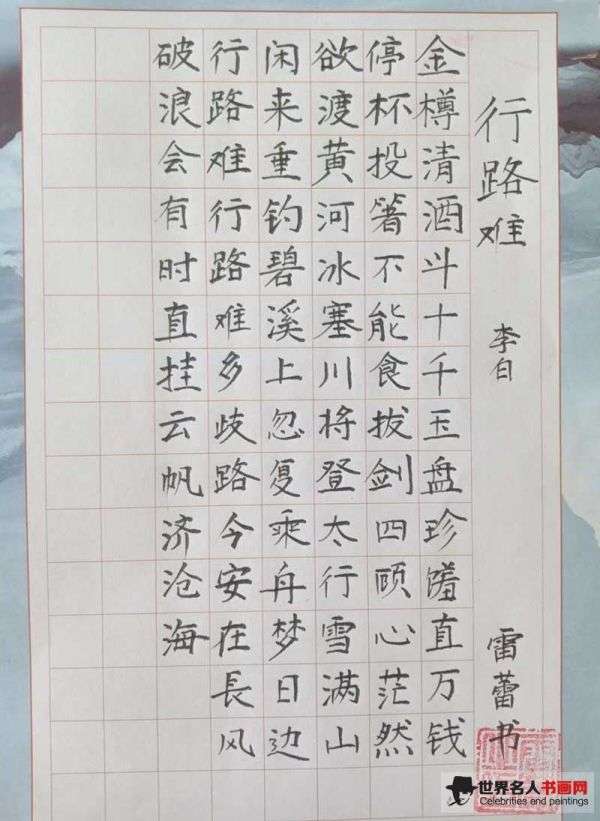 行路难
李白
雷蕾书
金樽清酒斗十千玉盘珍馐直万钱
停杯投箸不能食拔剑四顾心茫然
欲渡黄河冰塞川将登太行雪满山
闲来垂钓碧溪上忽复乘舟梦日边
行路难行路难多歧路今安在長风
破浪会有时直挂云帆济沧海
世界名人书画网
Celebrities and paintings